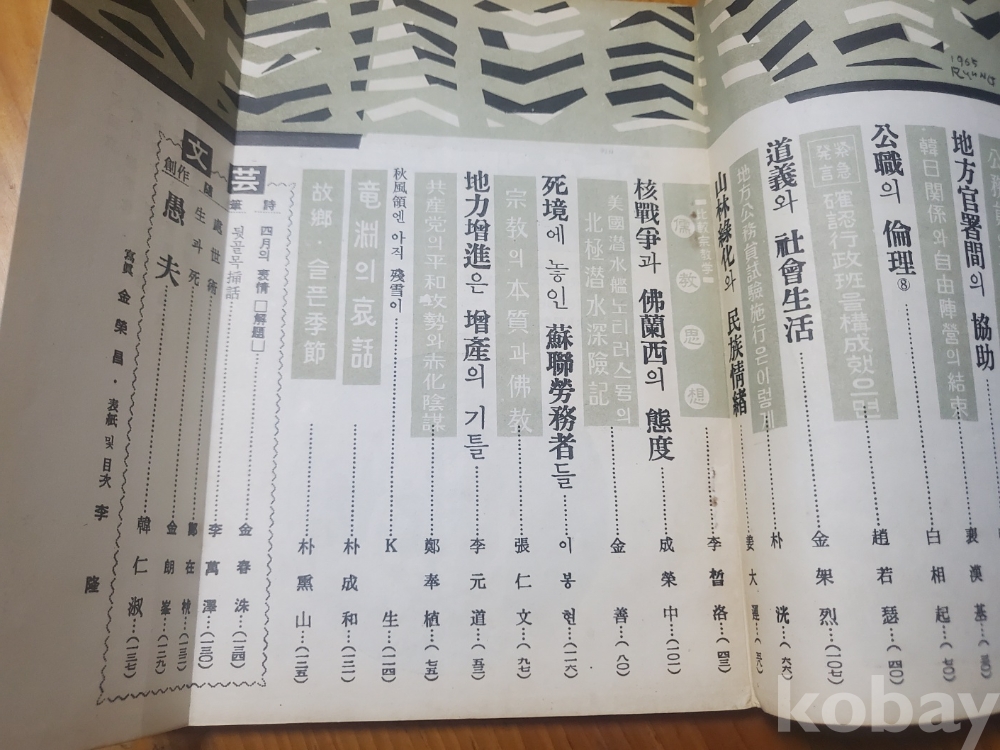 1965
地方官署間의 協助 裵漢基
韓日関係와 自由陣営의 結束 白相起…(七0)
公職의 倫理⑧ 趙若瑟…(四0)
緊急発言 確認行政班을 構成했으면 金架烈…(一0七)
道義와 社會生活 朴洸…(六六)
地方公務員試驗施行은 이렇게 姜大運
山林綠化와 民族情緒
比較宗敎学 儒教思想 李晢洛…(四三)
核戰爭과 佛蘭西의 態度 成榮中…(一0一)
美國潜水艦노디러스号의 北極潜水深険記 金善…(八0)
死境에 놓인 蘇聯勞務者들 이봉현…(一一六)
宗教의 本質과 佛教 張仁文…(九七)
地力增進은 增產의 기틀 李元道…(五三)
共産党의 平和攻勢와 赤化陰謀 鄭奉植…(七五)
秋風領엔 아직 殘雪이 K生…(一一四)
竜淵의 哀話 朴成和…(一二一)
故鄉·슬픈季節 朴熏山…(一二五)
文芸
詩 四月의 表情【解題】 金春洙…(一三四)
隨筆 뒷골목揷話 李萬澤…(一三0)
處世術 鄭在
生과 死 金朗峯…(一二九)
創作 愚夫 韓仁淑…(一三七)
寫眞 金榮昌·表紙 및 目次 李隆
kobay